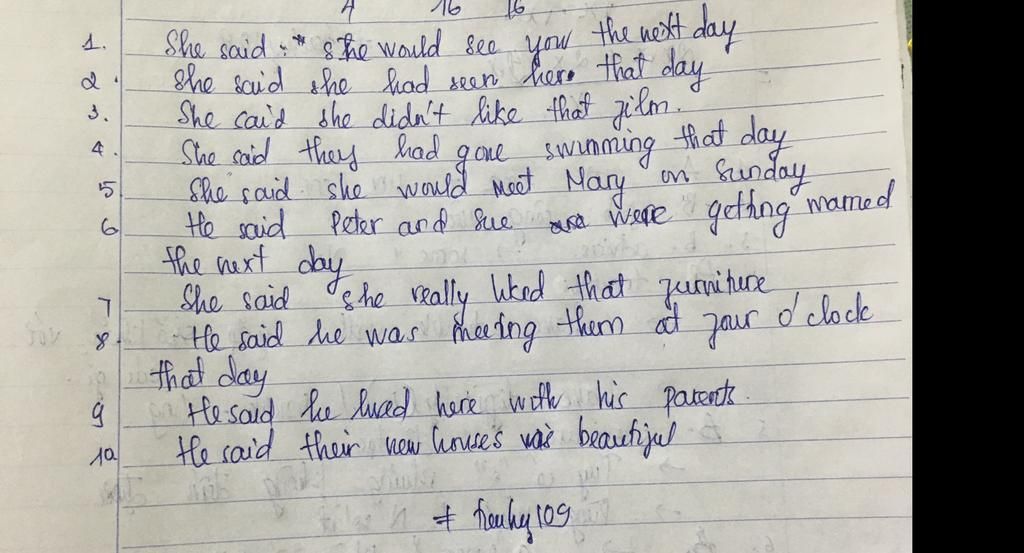 4 16 16
1. She said she would see you the next day
2. She said she had seen here that day
3. She said she didn't like that film.
4. She said they had gone swimming that day
5 She said she would meet Mary on Sunday
6 He said Peter and Sue were getting married
the next day
7 She said she really liked that furniture
8. He said he was meeting them at four o'clock
that day
9 He said he lived here with his parents.
10 He said their new houses was beautiful